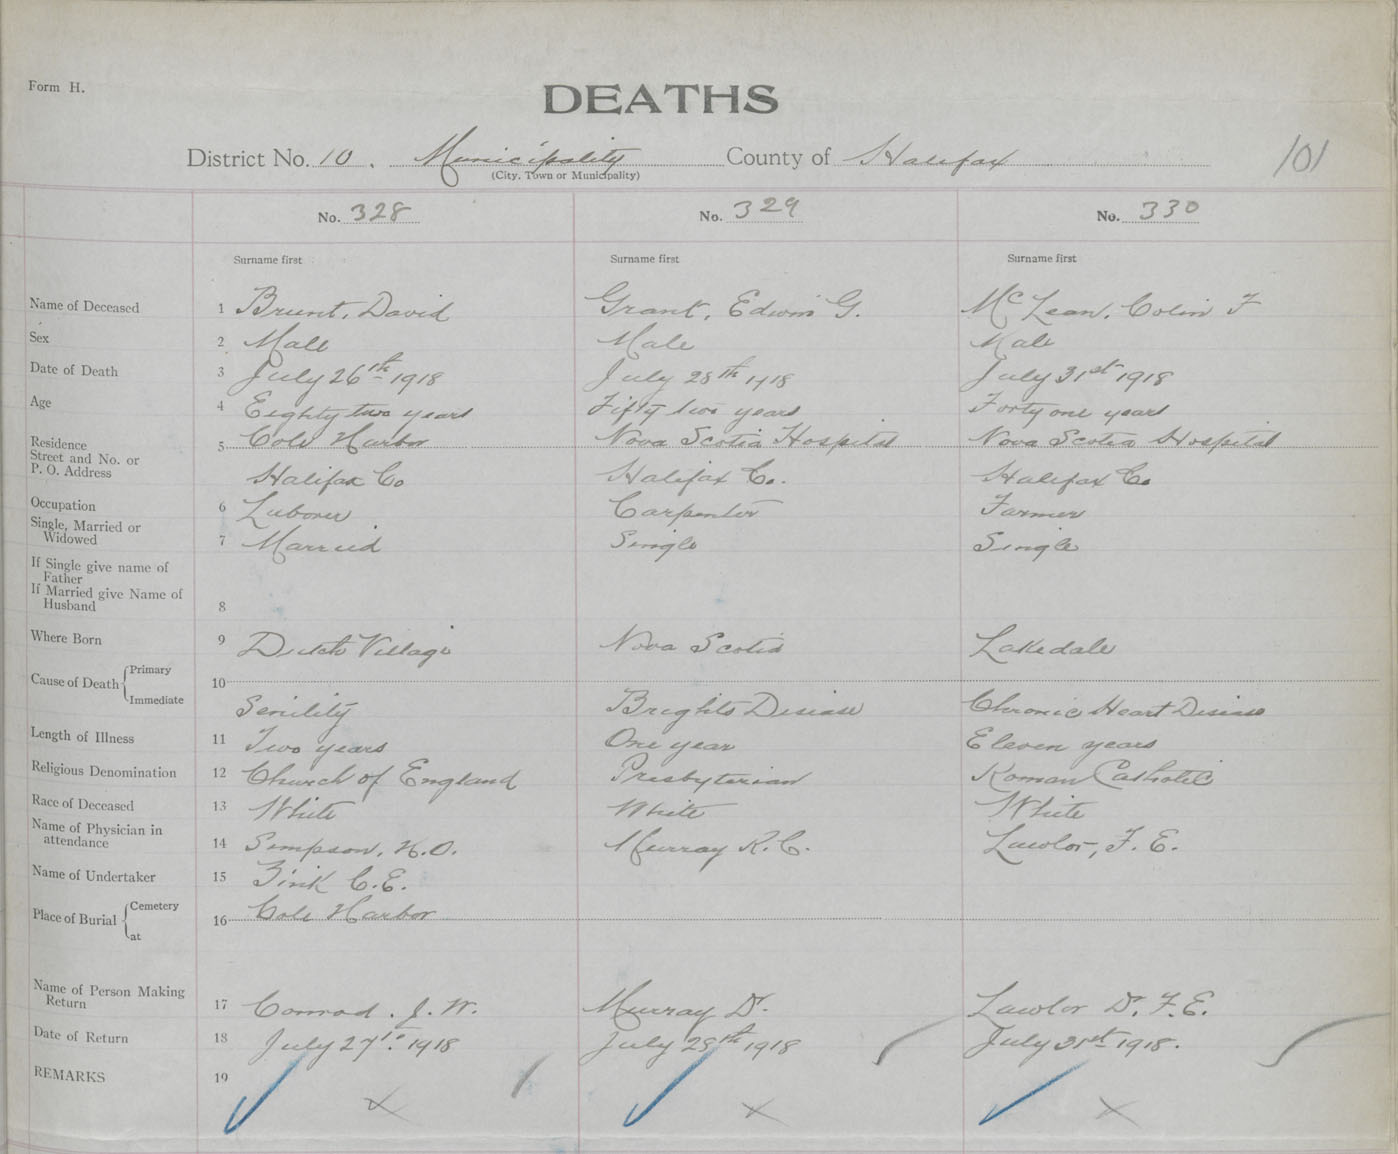 Form H.
DEATHS
District No. 10. Municipality County of Halifax 101
(City, Town or Municipality)
No. 328 No. 329 No. 330
Surname first Surname first Surname first
Name of Deceased 1 Brunt, David Grant, Edwin G. McLean, Colin F
Sex 2 Male Male Male
Date of Death 3 July 26th 1918 July 28th 1918 July 31st 1918
Age 4 Eighty two years Fifty two years Forty one years
Residence
Street and No. or
P. O. Address
5 Cole Harbor Nova Scotia Hospital Nova Scotia Hospital
Halifax Co Halifax Co. Halifax Co
Occupation 6 Laborer Carpenter Farmer
Single, Married or
Widowed
7 Married Single Single
If Single give name of
Father
If Married give Name of
Husband
8
Where Born 9 Dutch Village Nova Scotia Lakedale
Cause of Death Primary
10
Immediate
Senility Brights Disease Chronic Heart Disease
Length of Illness 11 Two years One year Eleven years
Religious Denomination 12 Church of England Presbyterian Roman Catholic
Race of Deceased 13 White White White
Name of Physician in
attendance
14 Simpson, H.O. Murray K.C. Lawlor, F. E.
Name of Undertaker 15 Zink C.E.
Place of Burial Cemetery
at
16 Cole Harbor
Name of Person Making
Return
17 Conrad. J. W. Murray Dr. Lawlor Dr. F.E.
Date of Return 18 July 27th 1918 July 28th 1918 July 31st 1918.
REMARKS 19